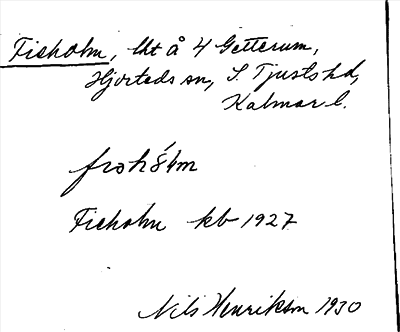 Fieholm, lht å 4 Getterum,
Hjorteds sn, S Tjusts hd,
Kalmar l.
Fieholm kb 1927
Nils Henrikson 1930